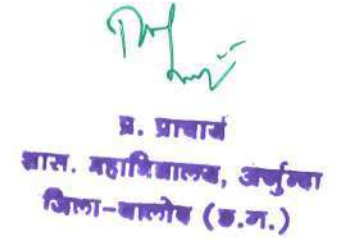 प्र. प्राचार्य
शास. महाविद्यालय, अर्जुन्दा
जिला-बालोद (छ.ग.)